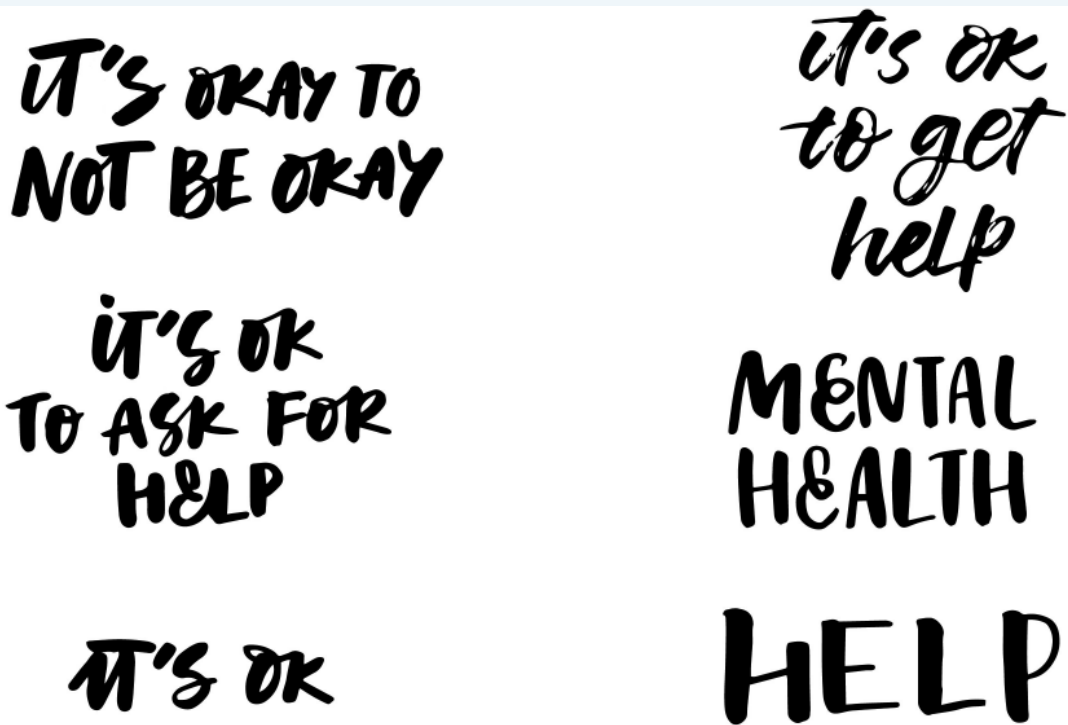 iT'S OKAY TO
NOT BE OKAY
iT'S OK
TO ASK FOR
HELP
iT'S OK
it's OK
to get
help
MENTAL
HEALTH
HELP